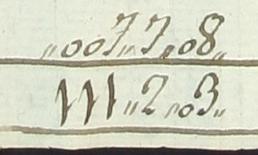 „007„7„08„
111„2„03„